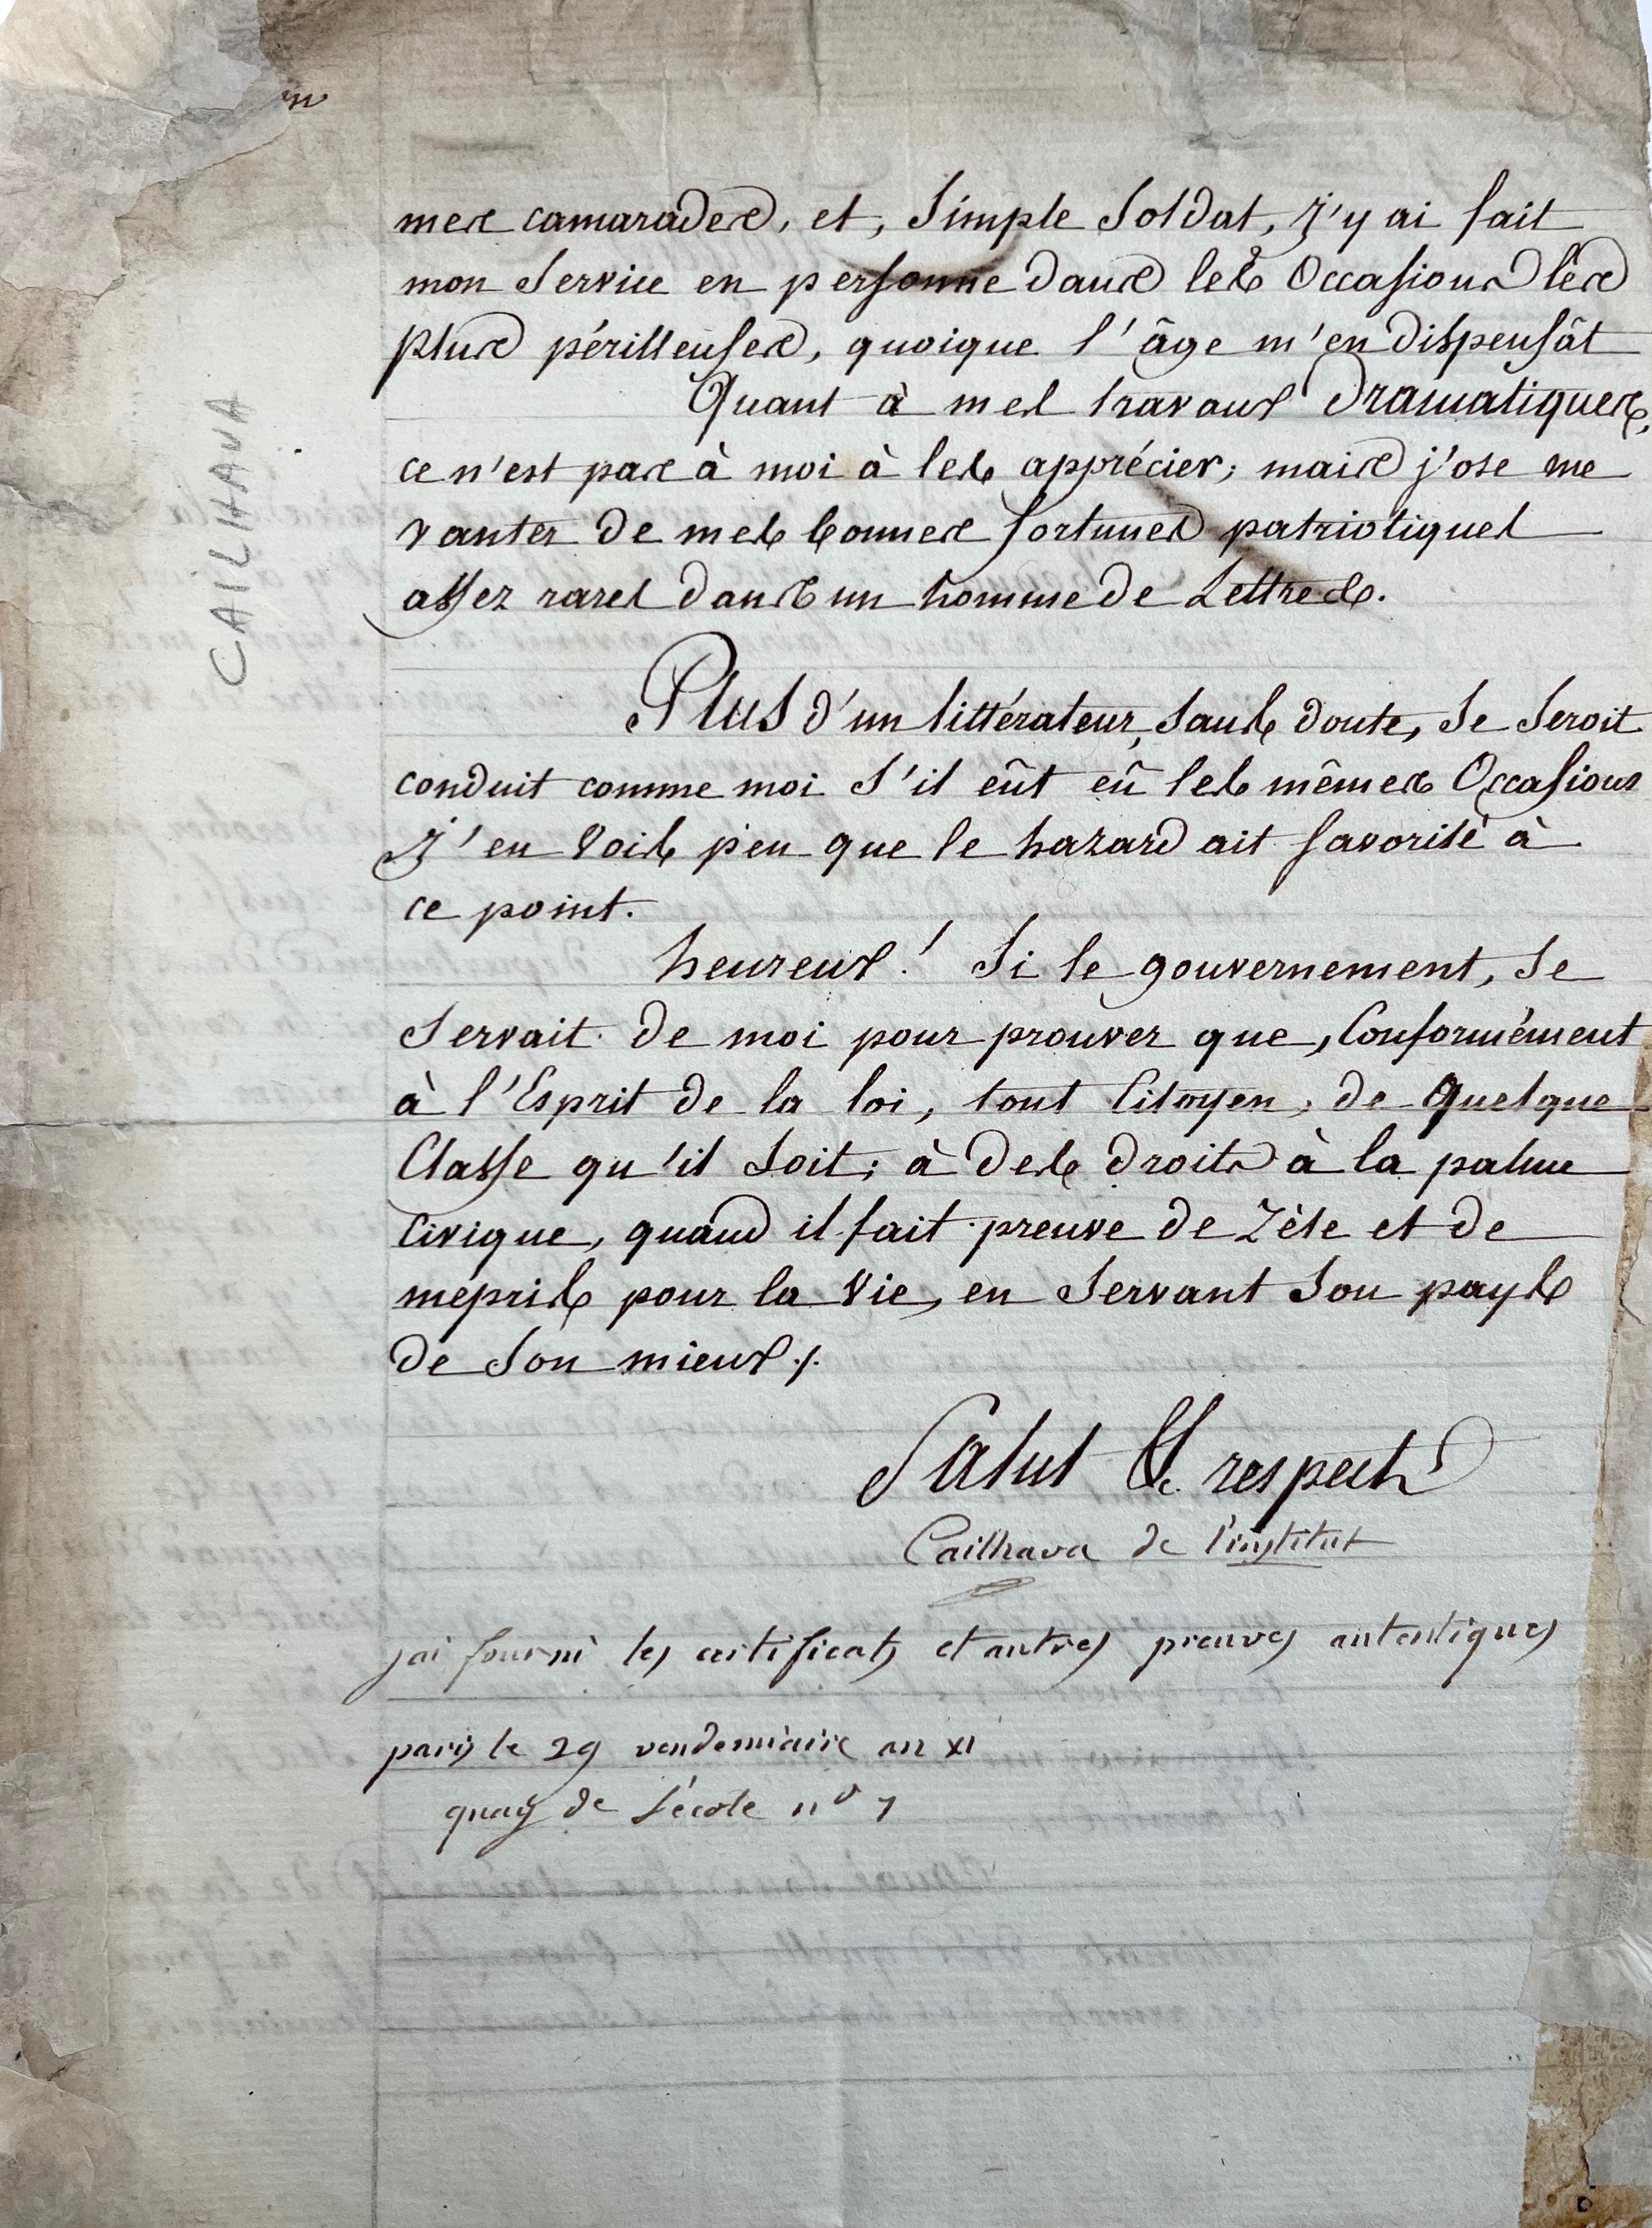 m
CAILHAVA
mes camarades, et, Simple Soldat, J'y ai fait
mon Service en personne dans les Occasions les
plus périlleuses, quoique l'âge m'en dispensât
Quant à mes travaux Dramatiques,
ce n'est pas à moi à les apprécier; mais j'ose me
vanter de mes bonnes fortunes patriotiques
assez rares dans un homme de Lettres.
Plus d'un littérateur, Sans doute, Se Seroit
conduit comme moi S'il eût eû les mêmes Occasions
J'en Vois peu que le hazard ait favorisé à
ce point.
heureux! Si le gouvernement, Se
Servait de moi pour prouver que, Conformément
à l'Esprit de la loi, tout Citoyen, de quelque
Classe qu'il Soit; à des droits à la palme
Civique, quand il fait preuve de Zèle et de
mépris pour la Vie, en Servant Son pays
de Son mieux ./.
Salut & respect
Cailhava de l'institut
jai fourni les certificats et autres preuves autentiques
paris le 29 vendemiaire an XI
quay de L'école n° 7